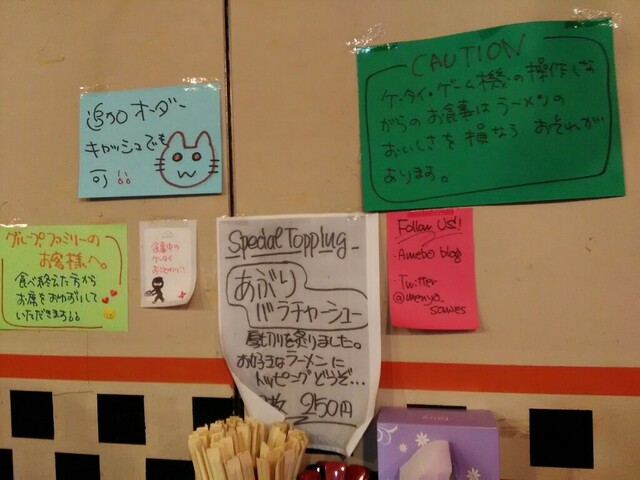 CAUTION
ケータイ・ゲーム機の操作しな
がらのお食事はラーメンの
おいしさを損なう おそれが
あります。
追加オーダー
キャッシュでも
可
グループファミリーの
お客様へ。
食べ終えた方から
お席をおゆずりして
いただきます
食事中の
ケータイ
Special Topping
あぶり
バラチャーシュー
厚切りを炙りました。
お好きなラーメンに
トッピングどうぞ…
枚 250円
Follow Us!
・Amebo blog
・Twitter
@menya_